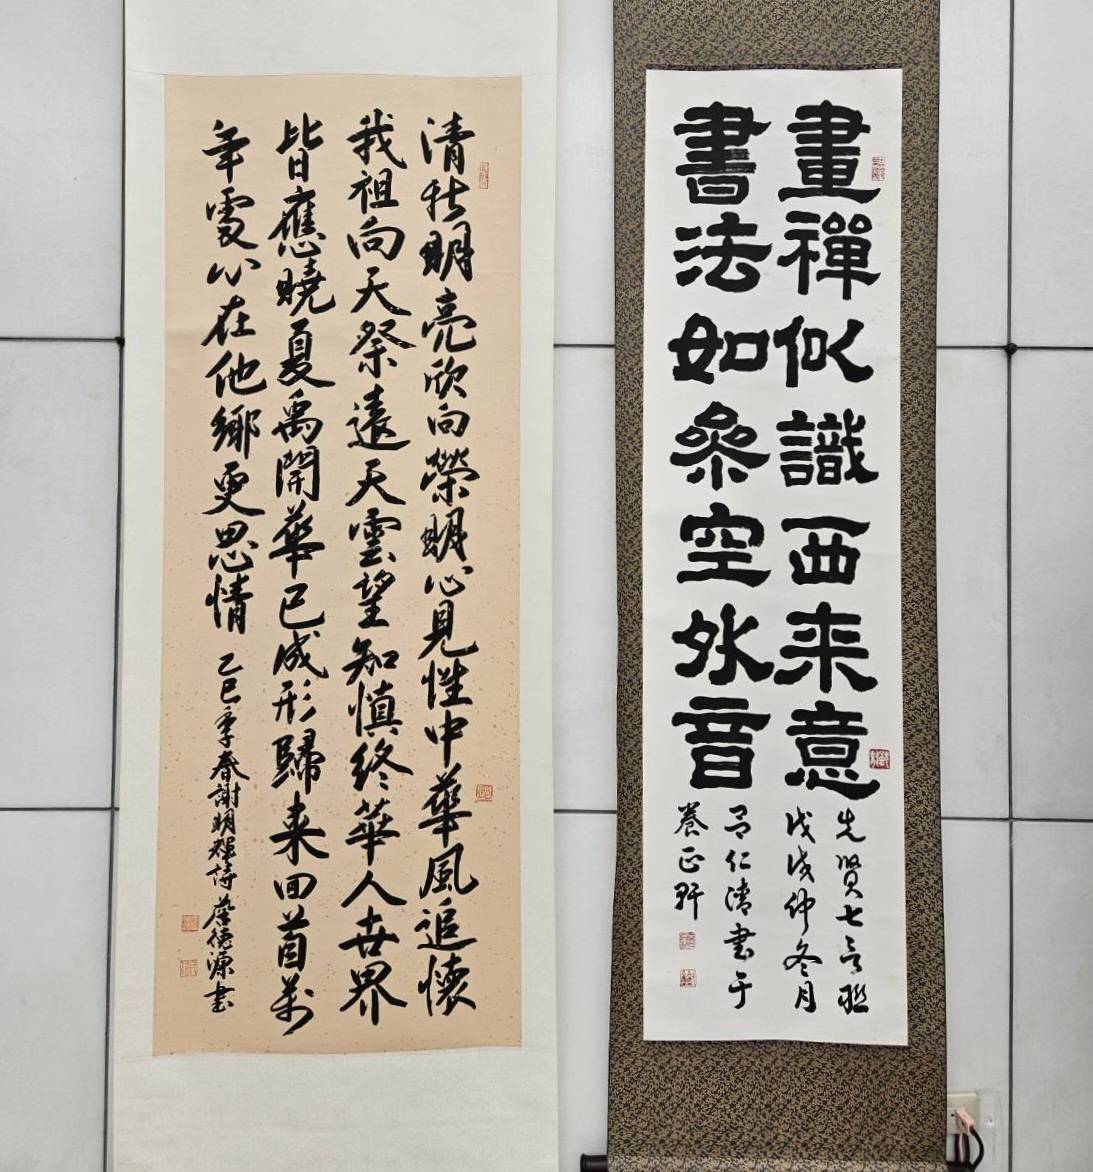 畫禪似識西来意
書法如參空外音
先贤七言联
戊戌仲冬月
吕仁清书于
養正軒
清明亮欣向榮明心見性中華風追懷
我祖向天祭遠天雲望知慎終華人世界
皆應曉夏禹開華已成形歸来回首萬
年心在他鄉更思情
乙巳季春謝明輝詩 德源书